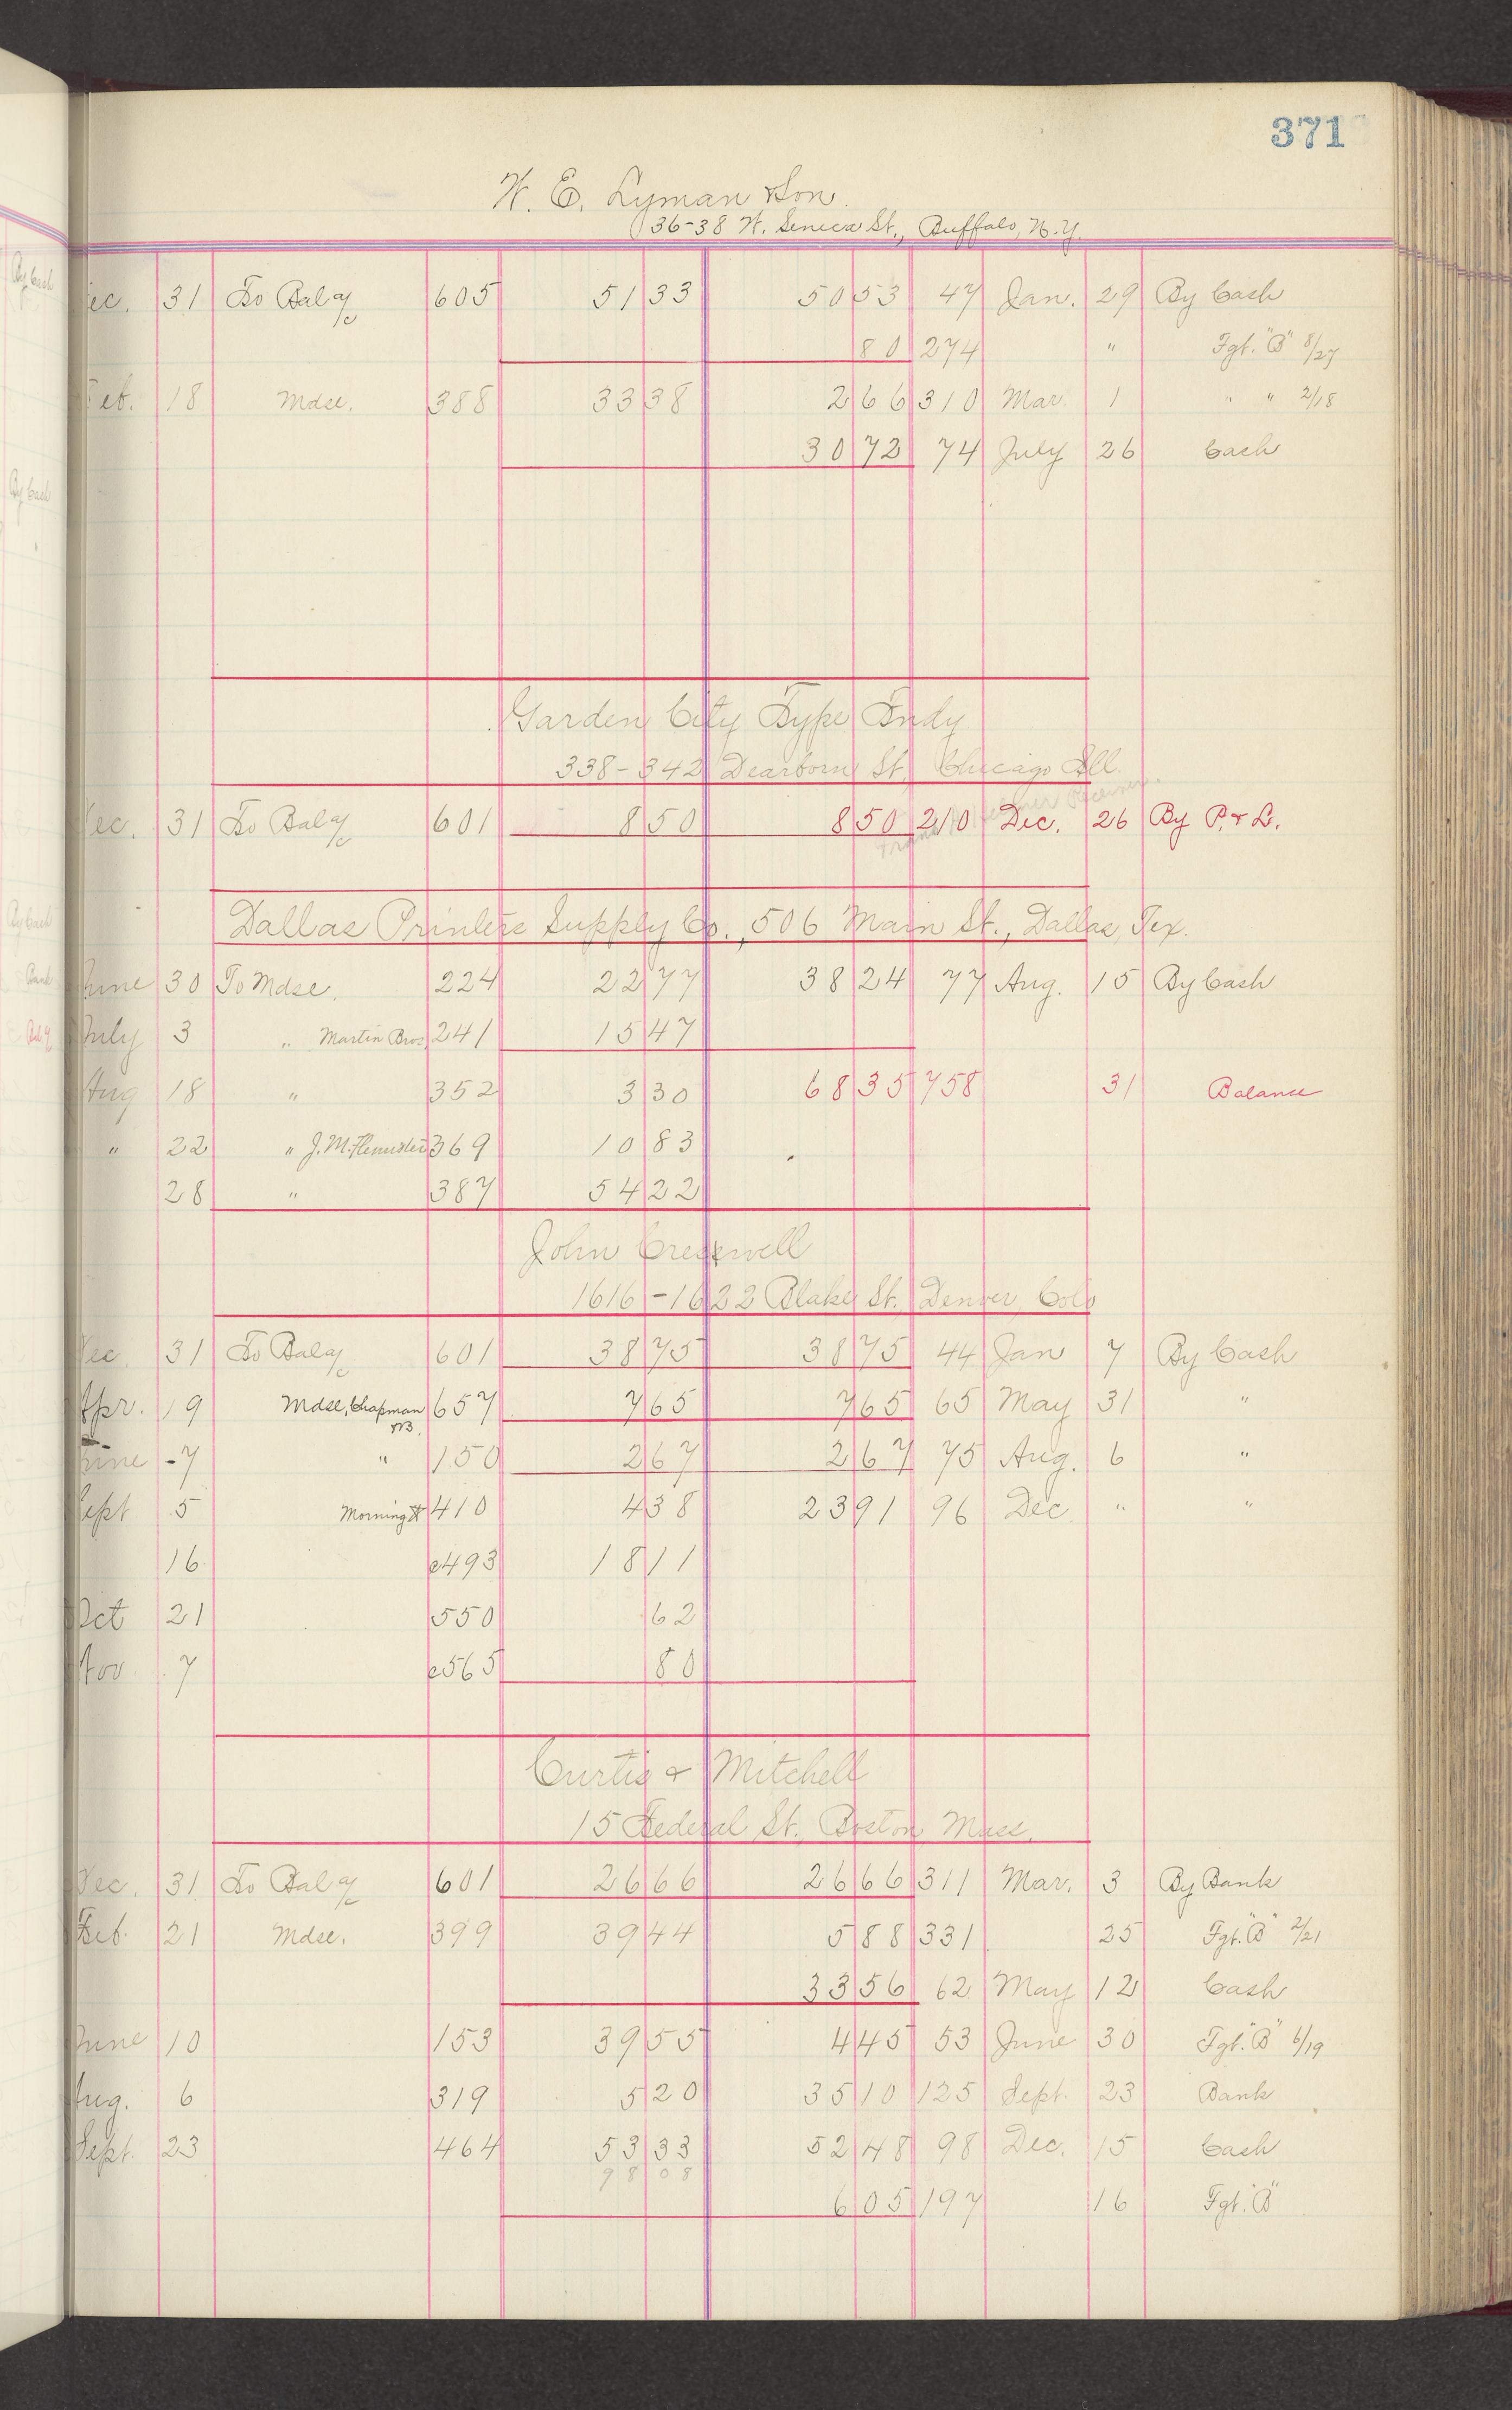 371
W. E. Lyman & Son.
36-38 W. Seneca St., Buffalo, N.Y.
Dec. 31 To Bal a/c 605 51 33 50 53 47 Jan. 29 By Cash
80 274 " Fgt. "B" 8/27
Feb. 18 Mdse. 388 33 38 2 66 310 Mar. 1 " " 2/18
30 72 74 July 26 Cash
Garden City Type Fndy
338-342 Dearborn St, Chicago Ill.
Dec. 31 To Bal a/c 601 8 50 8 50 210 Dec. 26 By P. & L.
Dallas Printers Supply Co., 506 Main St., Dallas, Tex.
June 30 To Mdse. 224 22 77 38 24 77 Aug. 15 By Cash
July 3 " Martin Bros. 241 15 47
Aug 18 " 352 3 30 68 35 758 31 Balance
" 22 " J.M. 369 10 83
28 " 387 54 22
John Cresswell
1616-1622 Blake St., Denver, Colo
Dec. 31 To Bal a/c 601 38 75 38 75 44 Jan 7 By Cash
Apr. 19 Mdse, Chapman 657 7 65 7 65 65 May 31 "
June -7 " 150 2 67 2 67 75 Aug. 6 "
Sept 5 Morning 410 4 38 23 91 96 Dec. " "
16 e493 18 11
Oct 21 550 62
Nov. 7 e565 80
Curtis & Mitchell
15 Federal St., Boston Mass.
Dec. 31 To Bal a/c 601 26 66 26 66 311 Mar. 3 By Bank
Feb. 21 Mdse. 399 39 44 5 88 331 25 Fgt. "B" 2/21
33 56 62 May 12 Cash
June 10 153 39 55 4 45 53 June 30 Fgt. "B" 6/19
Aug. 6 319 5 20 35 10 125 Sept. 23 Bank
Sept. 23 464 53 33 52 48 98 Dec. 15 Cash
98 08
6 05 197 16 Fgt. "B"